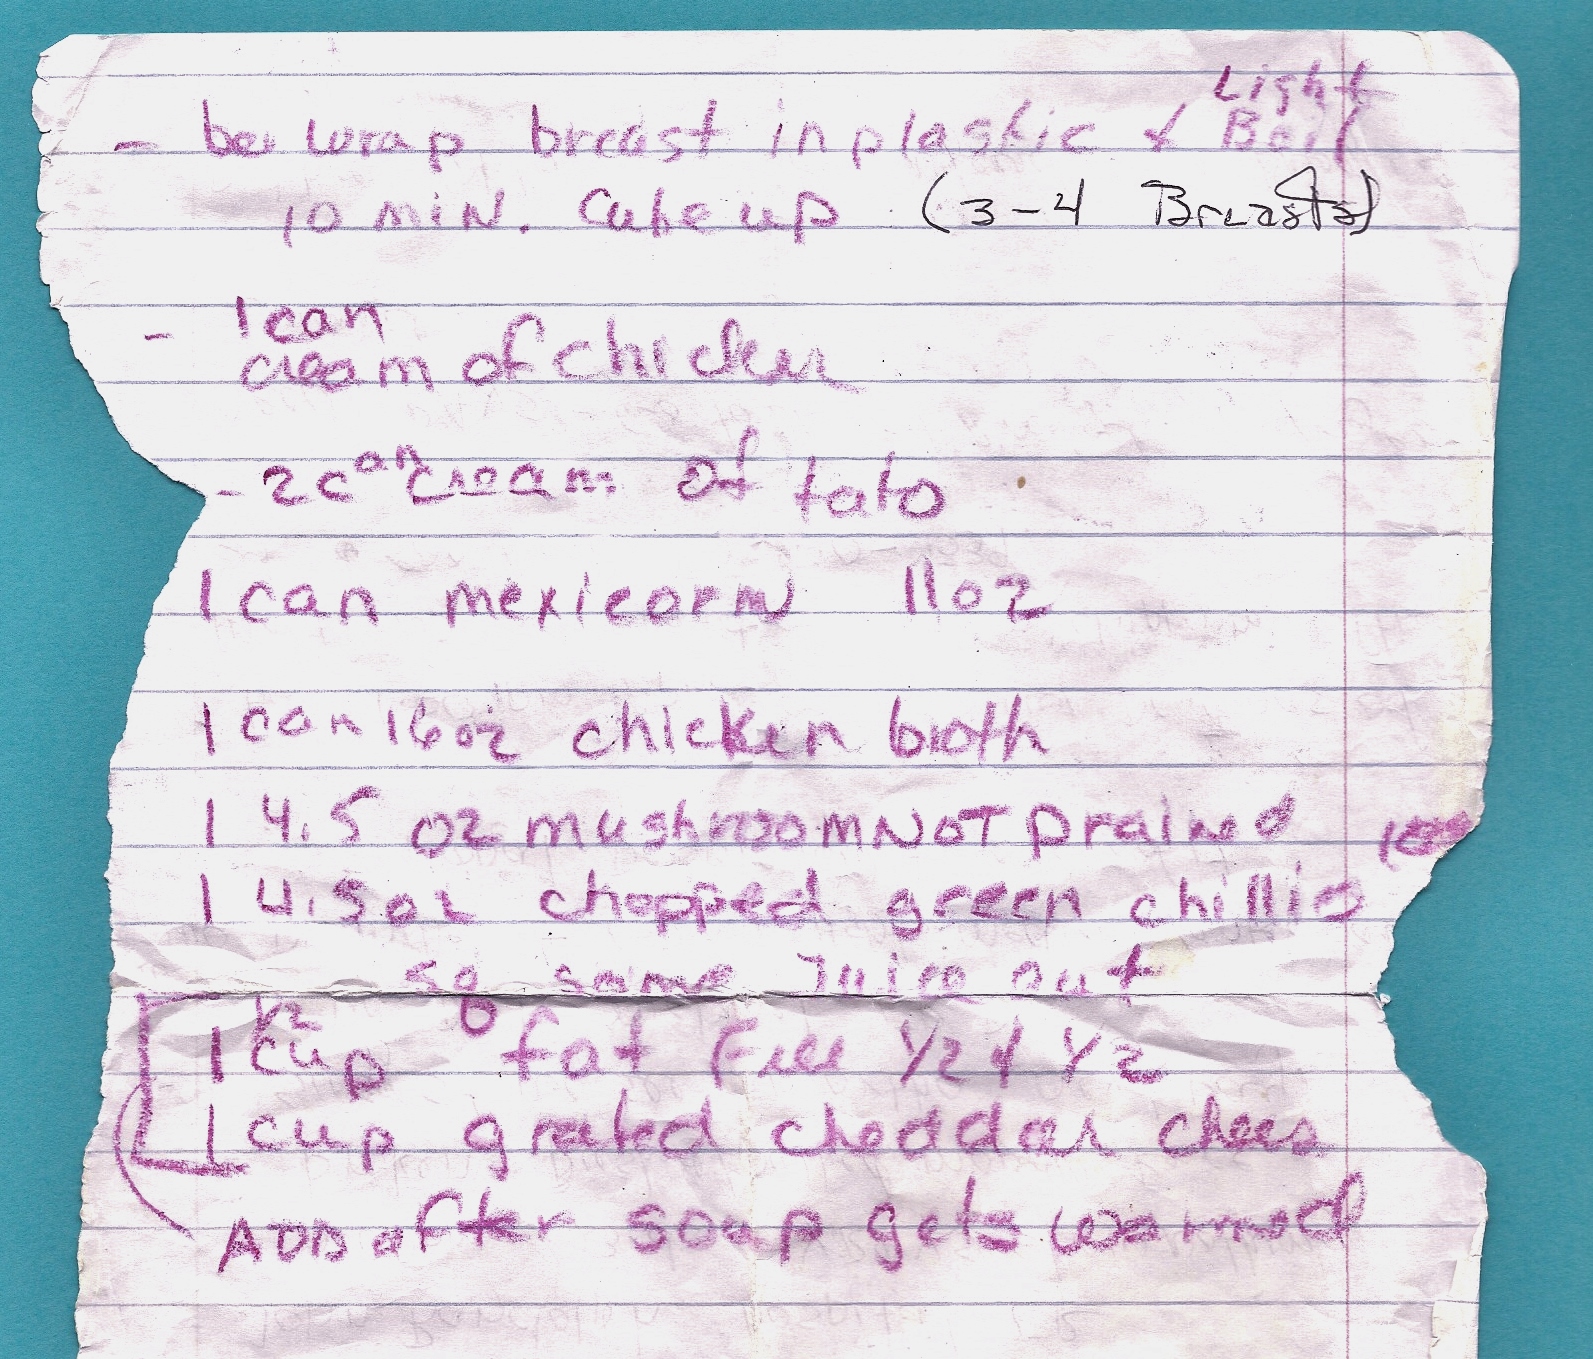 Light
- wrap breast in plastic & Boil
10 miN. Cube up (3-4 Breasts)
- 1 can
cream of chicken
- 2 can cream of tato
1 can mexicorn 11 oz
1 can 16 oz chicken broth
1 4.5 oz mushroom NOT Drained
1 4.5 oz chopped green chillis
so some Juice out
1/2
1 cup fat Free 1/2 & 1/2
1 cup grated cheddar chees
ADD after soup gets warmed